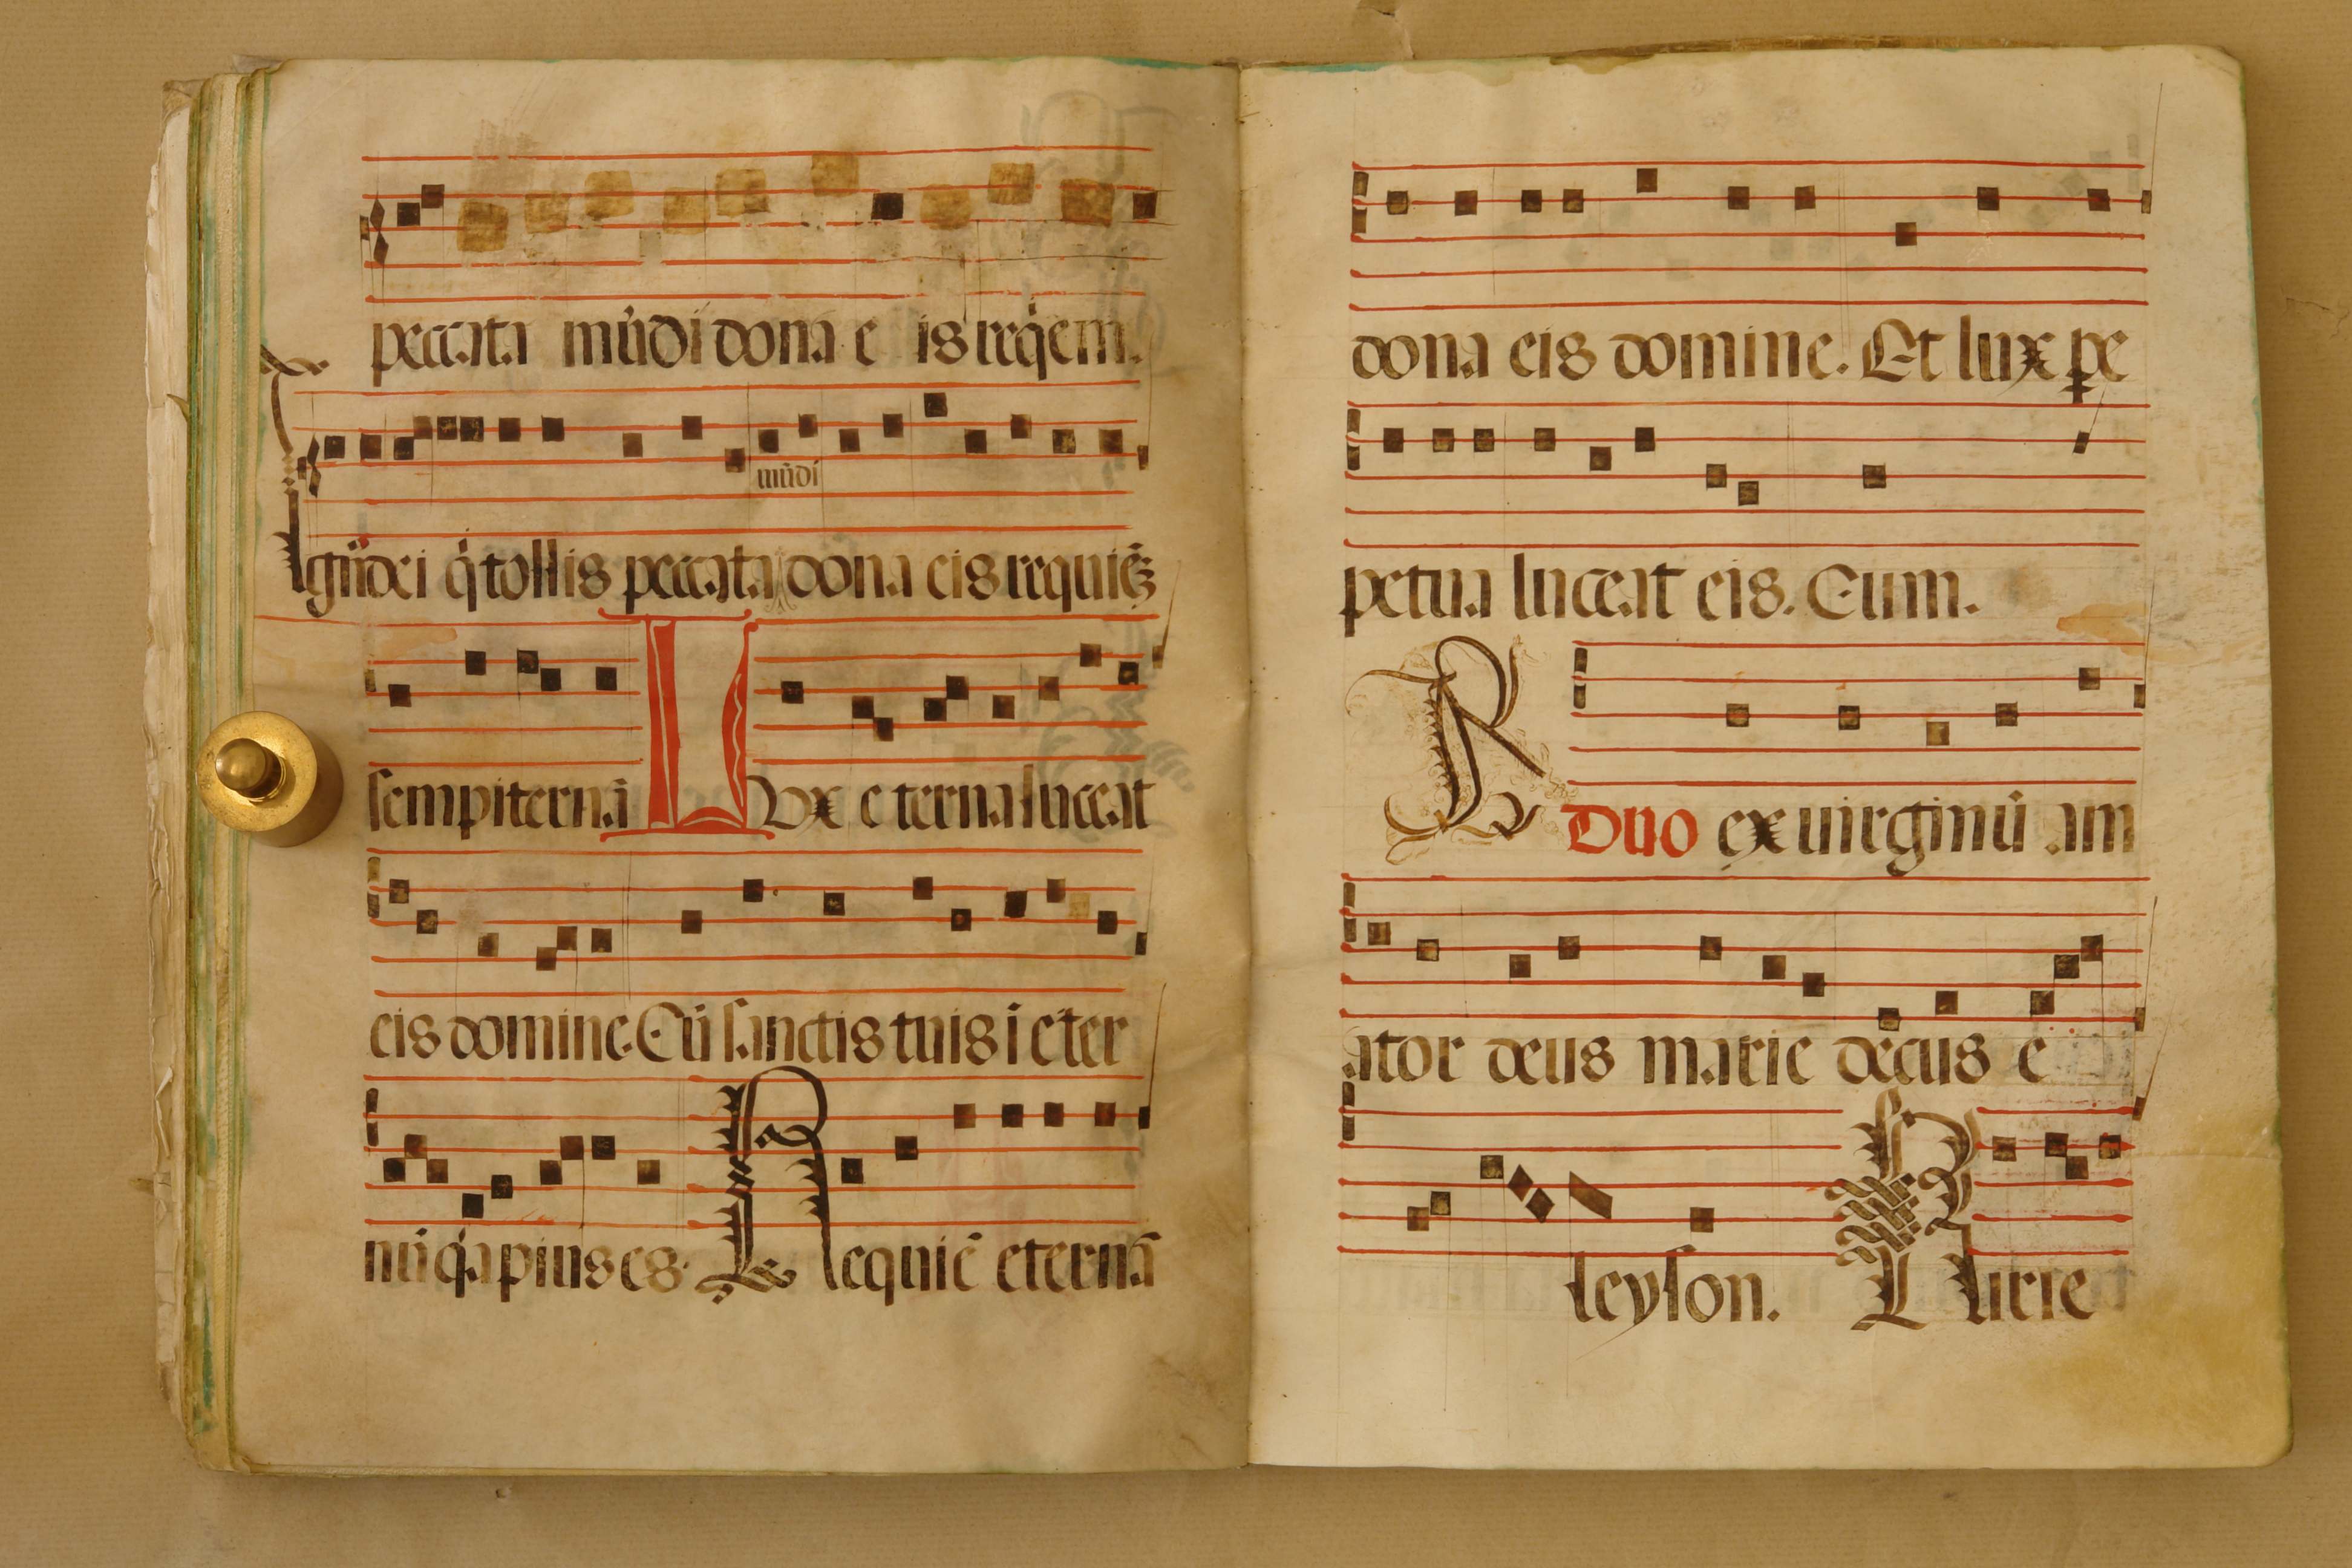 peccata mūdi dona e is req̇em.
mūdi
Agn̄ dei q̇ tollis peccata dona eis requiē
sempiternā Lux eterna luceat
eis domine. Cū sanctis tuis ī eter
nū q̇a pius es. Requiē eternā
dona eis domine. Et lux pe
petua luceat eis. Cum.
R Duo ex uirginū am
ator deus marie decus e
leyson. Kirie